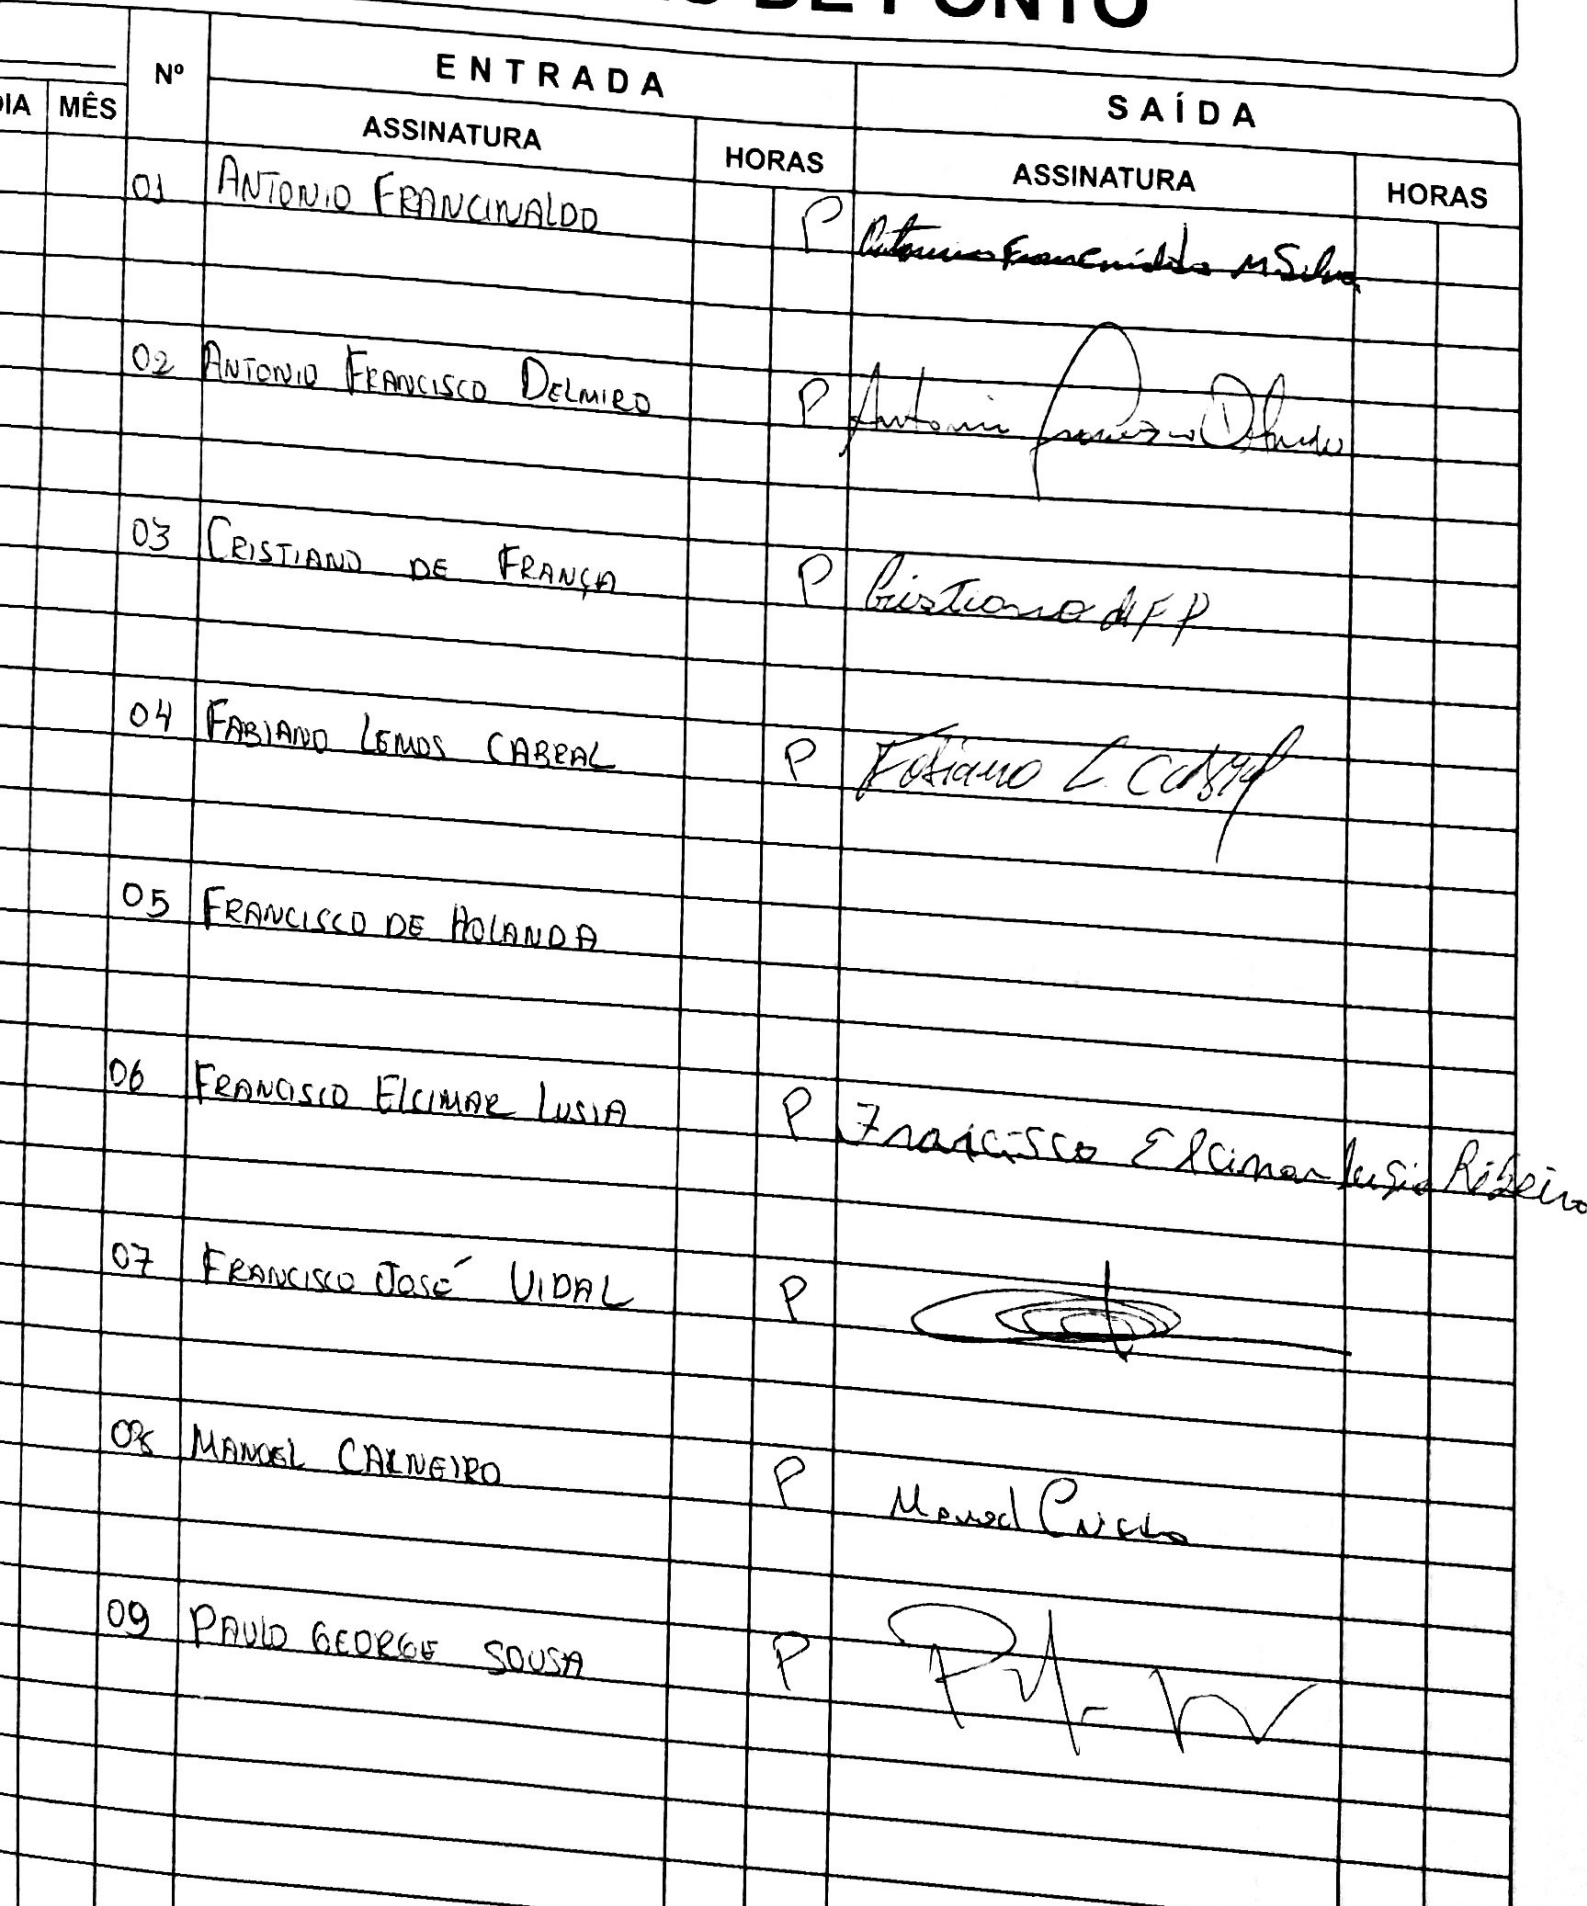 DE PONTO
Nº ENTRADA SAÍDA
MÊS ASSINATURA HORAS ASSINATURA HORAS
01 ANTONIO FRANCINALDO P Antonio Francinaldo M Silva
02 ANTONIO FRANCISCO DELMIRO P Antonio Francisco Delmiro
03 CRISTIANO DE FRANÇA P Cristiano de F P
04 FABIANO LEMOS CABRAL P Fabiano L. Cabral
05 FRANCISCO DE HOLANDA
06 FRANCISCO ELCIMAR LUSIA P Francisco Elcimar Lusia Ribeiro
07 FRANCISCO JOSÉ VIDAL P
08 MANOEL CARNEIRO P Manoel
09 PAULO GEORGE SOUSA P